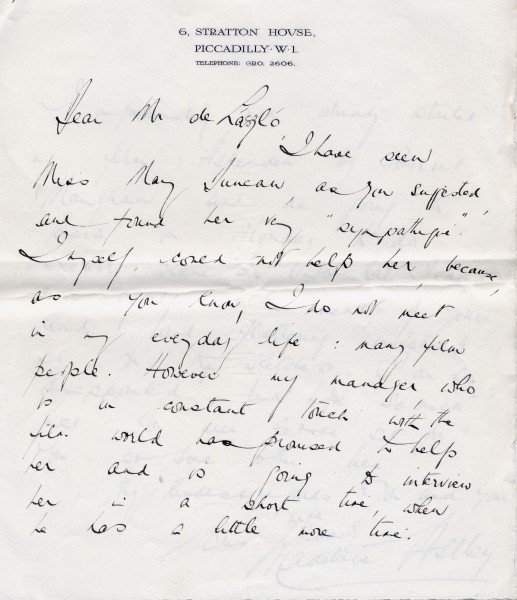 6, STRATTON HOUSE,
PICCADILLY·W·1.
TELEPHONE: GRO. 2606.
Dear Mr de László,
I have seen
Miss May Duncan as you suggested
and found her very "sympathique".
I myself, could not help her because,
as you know, I do not meet
in my everyday life: many film
people. However my manager who
is in constant touch with the
film world has promised to help
her and is going to interview
her in a short time, when
he has a little more time.